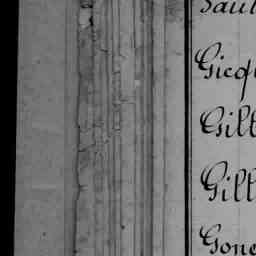 Saul
Gicq
Gilt
Gill
Gone